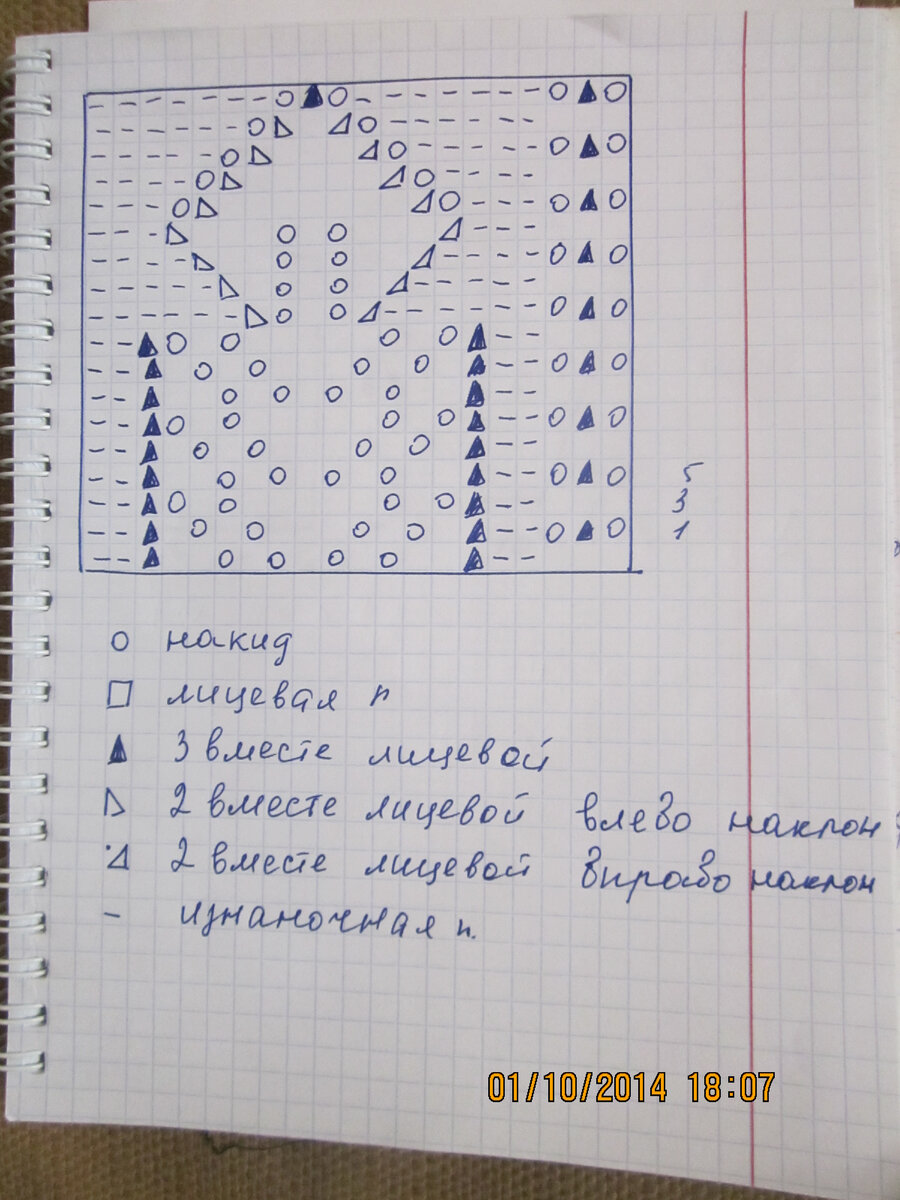 5
3
1
о накид
□ лицевая п
▲ 3 вместе лицевой
◺ 2 вместе лицевой влево наклон
◿ 2 вместе лицевой вправо наклон
- изнаночная п.
01/10/2014 18:07